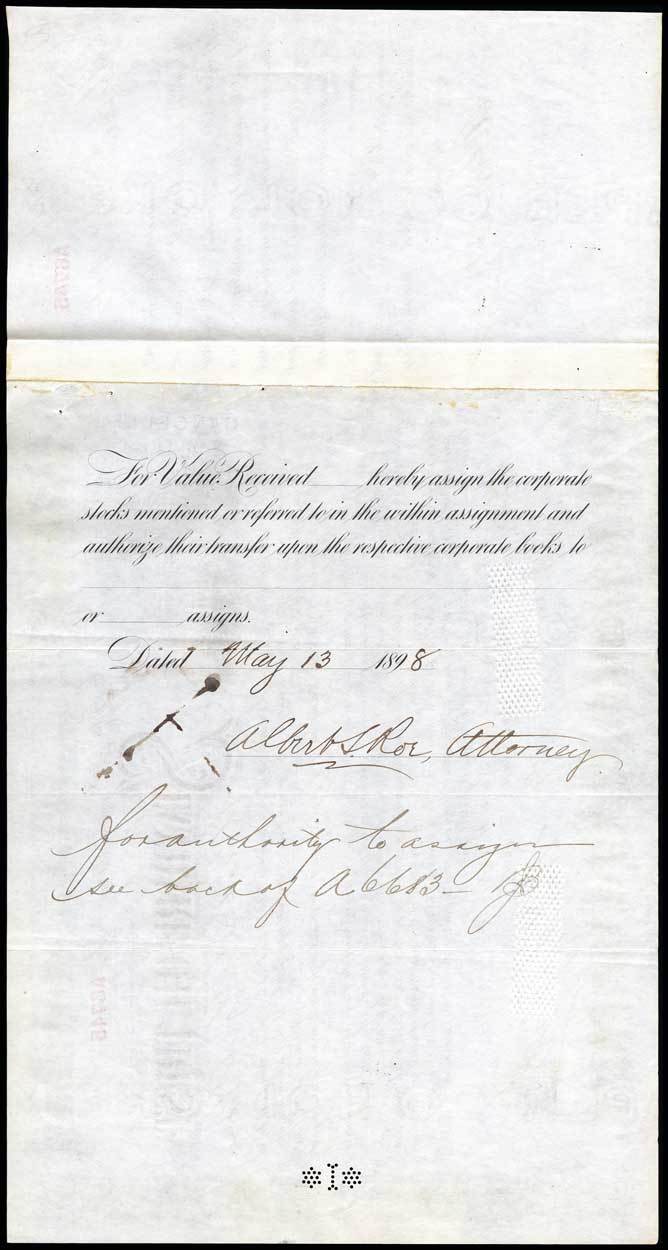 For Value Received ____ hereby assign the corporate
stocks mentioned or referred to in the within assignment and
authorize their transfer upon the respective corporate books to
or ____ assigns.
Dated May 13 1898
Albert S. Roe, Attorney.
for authority to assign
see back of A6683 –
A6745
A6745
*I*